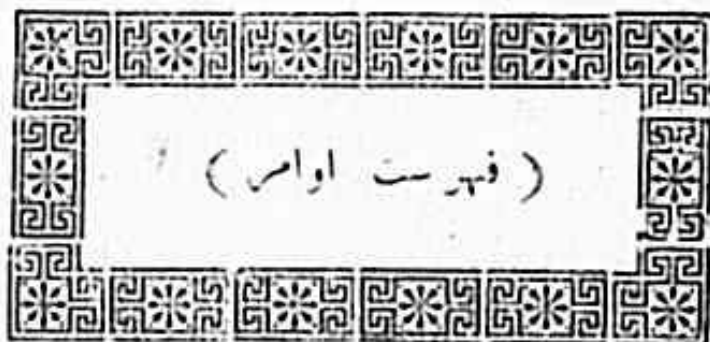 ( فهرست اوامر )